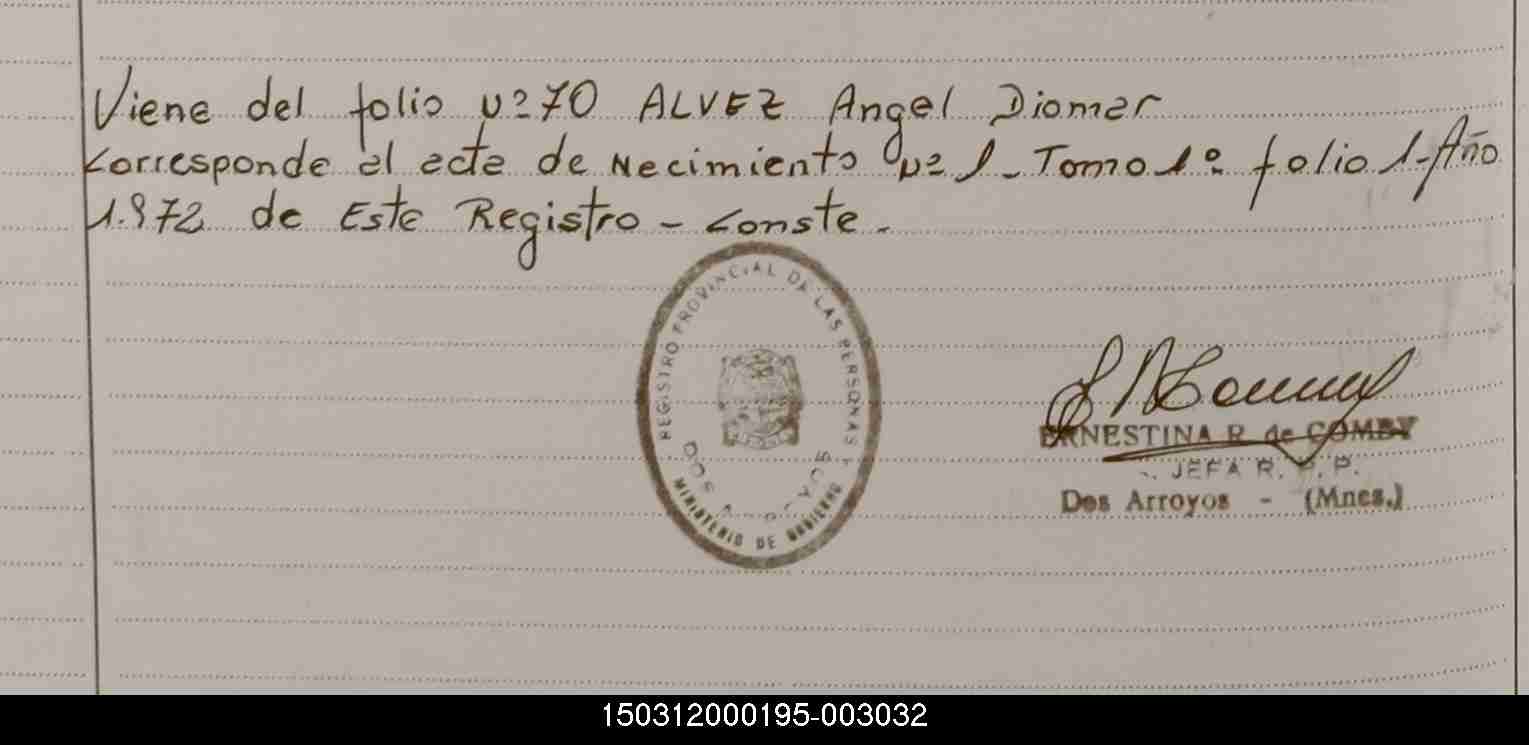 Viene del folio Nº 70 ALVEZ Angel Diomar
Corresponde al acta de Nacimiento Nº 1 - Tomo 1º folio 1 - Año
1.972 de Este Registro - Conste.
REGISTRO PROVINCIAL DE LAS PERSONAS
DOS ARROYOS
MINISTERIO DE GOBIERNO
ERNESTINA R. de COMBY
JEFA R. P. P.
Dos Arroyos - (Mnes.)
150312000195-003032